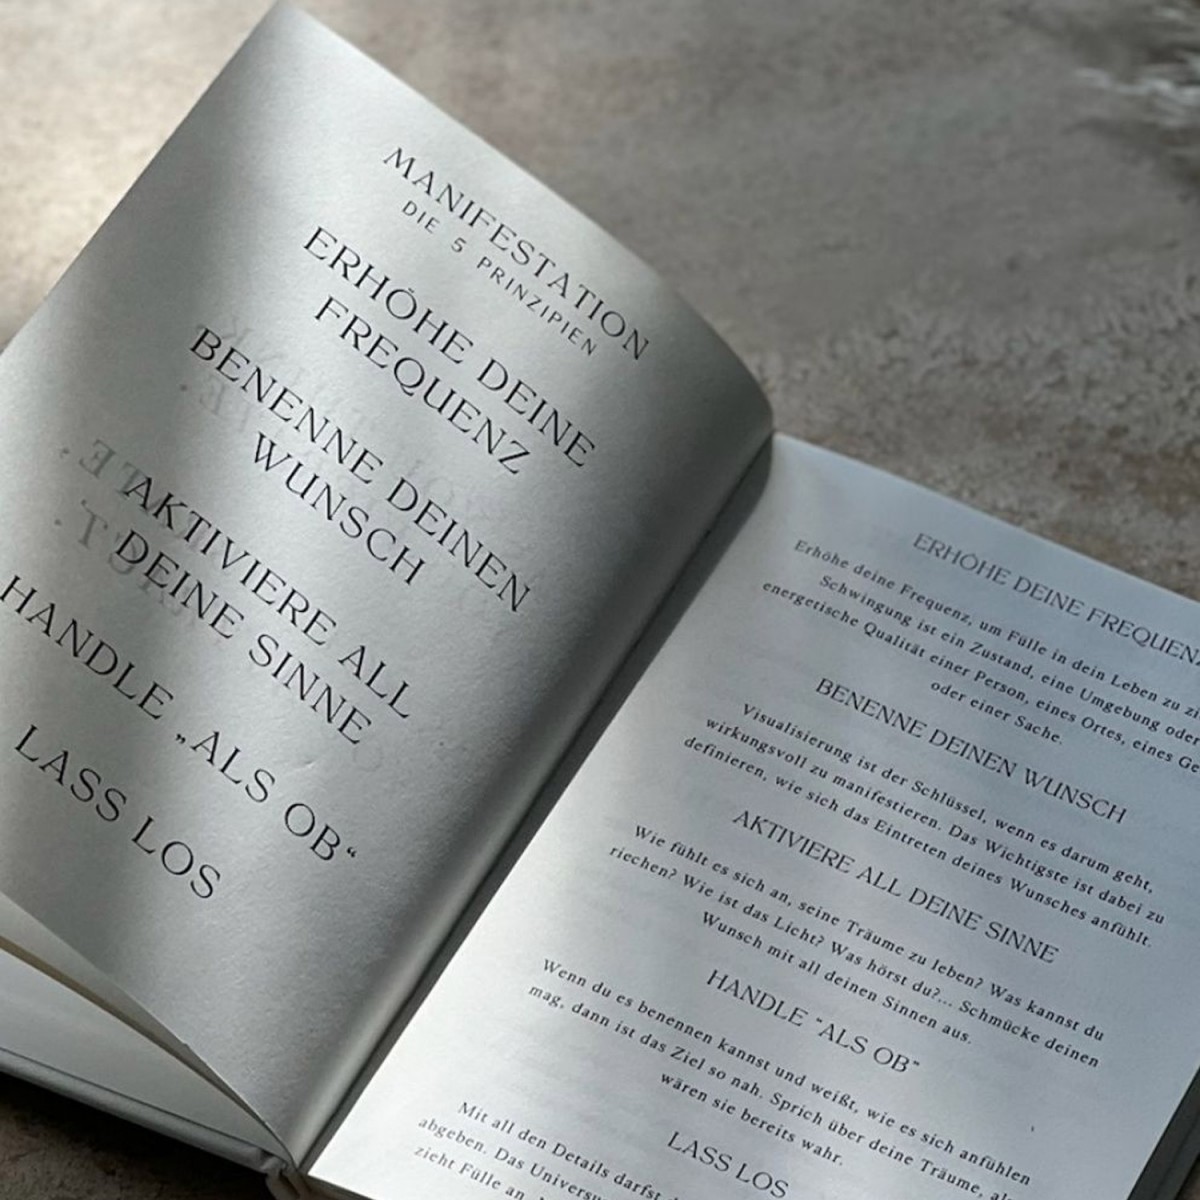 MANIFESTATION
DIE 5 PRINZIPIEN
ERHÖHE DEINE
FREQUENZ
BENENNE DEINEN
WUNSCH
AKTIVIERE ALL
DEINE SINNE
HANDLE „ALS OB“
LASS LOS
ERHÖHE DEINE
Erhöhe deine Frequenz, um Fülle in dein Leben zu
Schwingung ist ein Zustand, eine Umgebung oder
energetische Qualität einer Person, eines Ortes, eines
oder einer Sache.
BENENNE DEINEN WUNSCH
Visualisierung ist der Schlüssel, wenn es darum geht,
wirkungsvoll zu manifestieren. Das Wichtigste ist dabei zu
definieren, wie sich das Eintreten deines Wunsches anfühlt.
AKTIVIERE ALL DEINE SINNE
Wie fühlt es sich an, seine Träume zu leben? Was kannst du
riechen? Wie ist das Licht? Was hörst du?... Schmücke deinen
Wunsch mit all deinen Sinnen aus.
HANDLE "ALS OB"
Wenn du es benennen kannst und weißt, wie es sich anfühlen
mag, dann ist das Ziel so nah. Sprich über deine Träume, als
wären sie bereits wahr.
LASS LOS
Mit all den Details darfst
abgeben. Das
zieht Fülle an